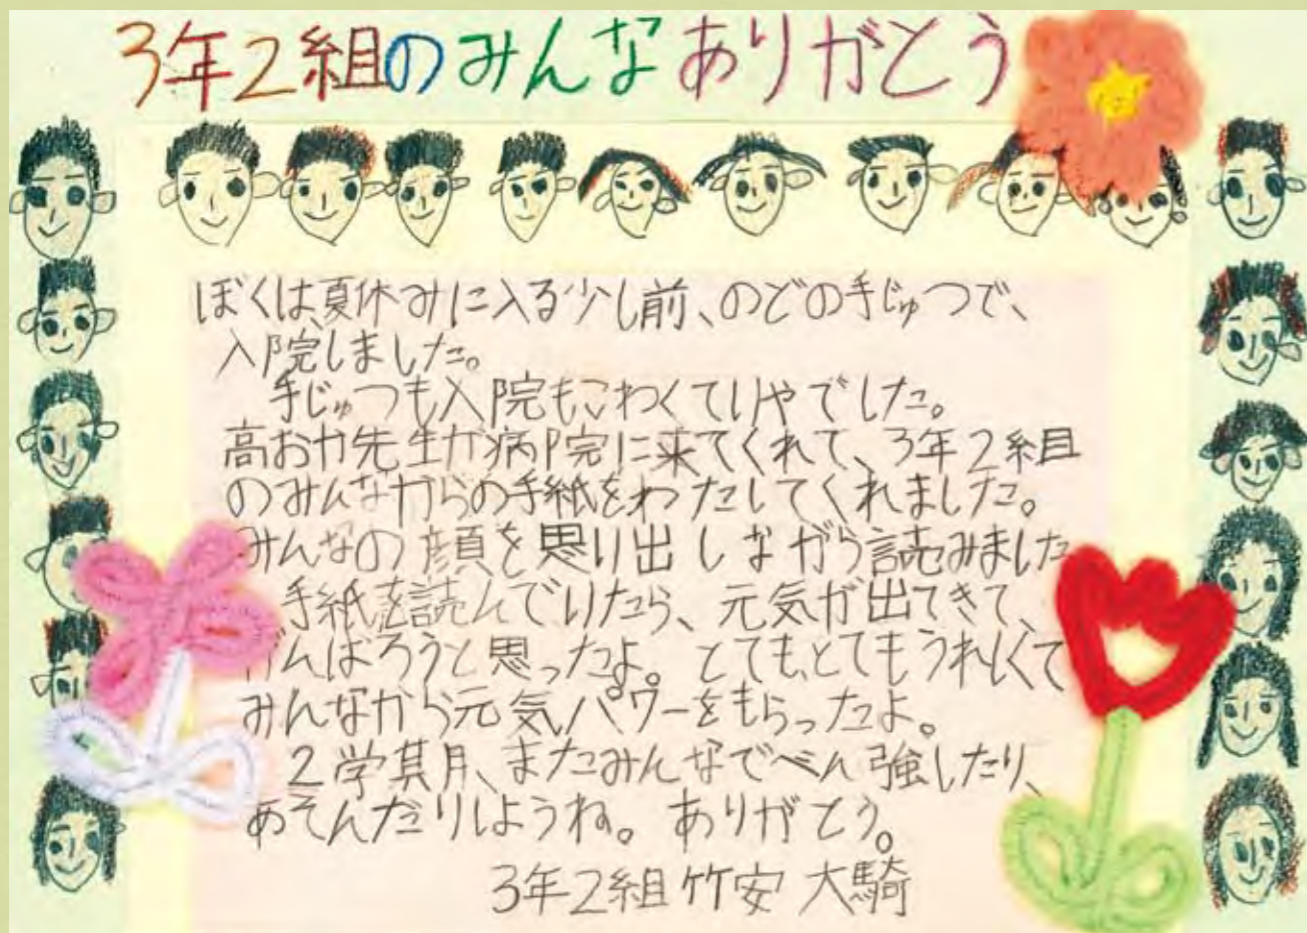 3年2組のみんなありがとう
ぼくは、夏休みに入る少し前、のどの手じゅつで、
入院しました。
手じゅつも入院もこわくていやでした。
高おか先生が病院に来てくれて、3年2組
のみんなからの手紙をわたしてくれました。
みんなの顔を思い出しながら読みました
手紙を読んでいたら、元気が出てきて、
がんばろうと思ったよ。とてもとてもうれしくて
みんなから元気パワーをもらったよ。
2学期、またみんなでべん強したり、
あそんだりしようね。ありがとう。
3年2組 竹安 大騎